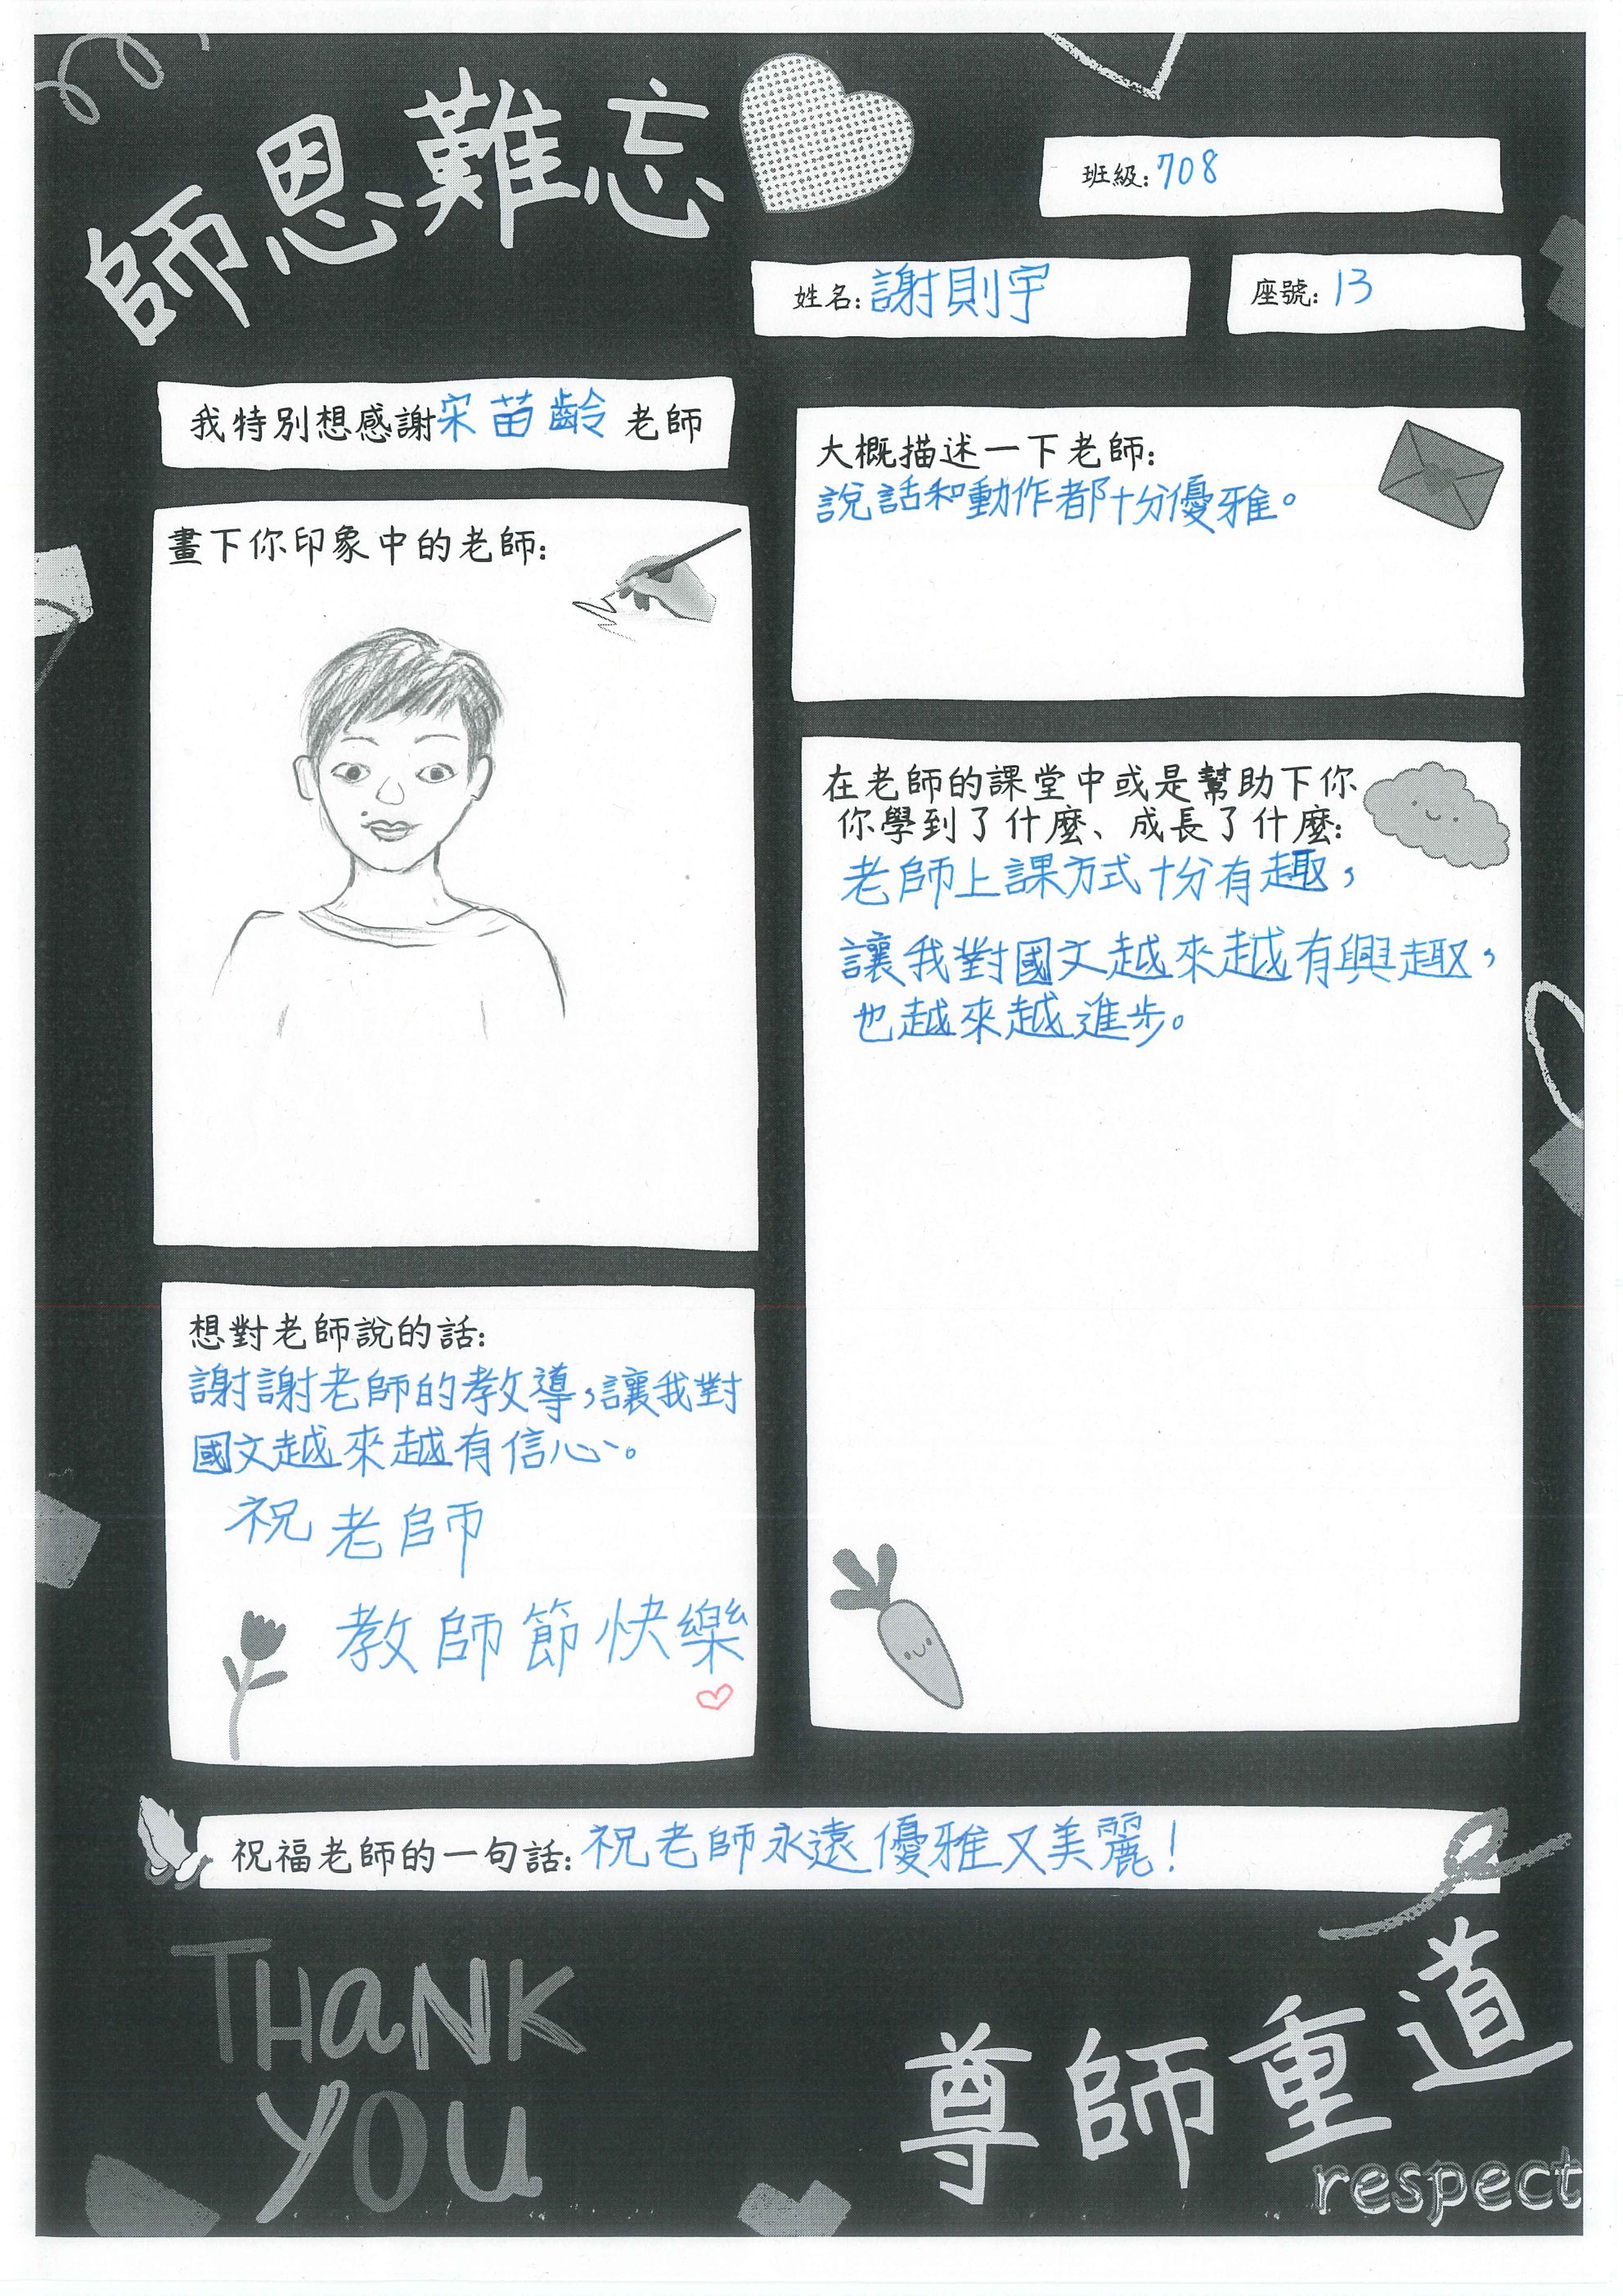 師恩難忘
班級:708
姓名:謝則宇
座號:13
我特別想感謝宋苗齡老師
畫下你印象中的老師:
大概描述一下老師:
說話和動作都十分優雅。
在老師的課堂中或是幫助下你
你學到了什麼、成長了什麼:
老師上課方式十分有趣，
讓我對國文越來越有興趣，
也越來越進步。
想對老師說的話:
謝謝老師的教導，讓我對
國文越來越有信心。
祝老師
教師節快樂
祝福老師的一句話:祝老師永遠優雅又美麗！
THANK
YOU
尊師重道
respect